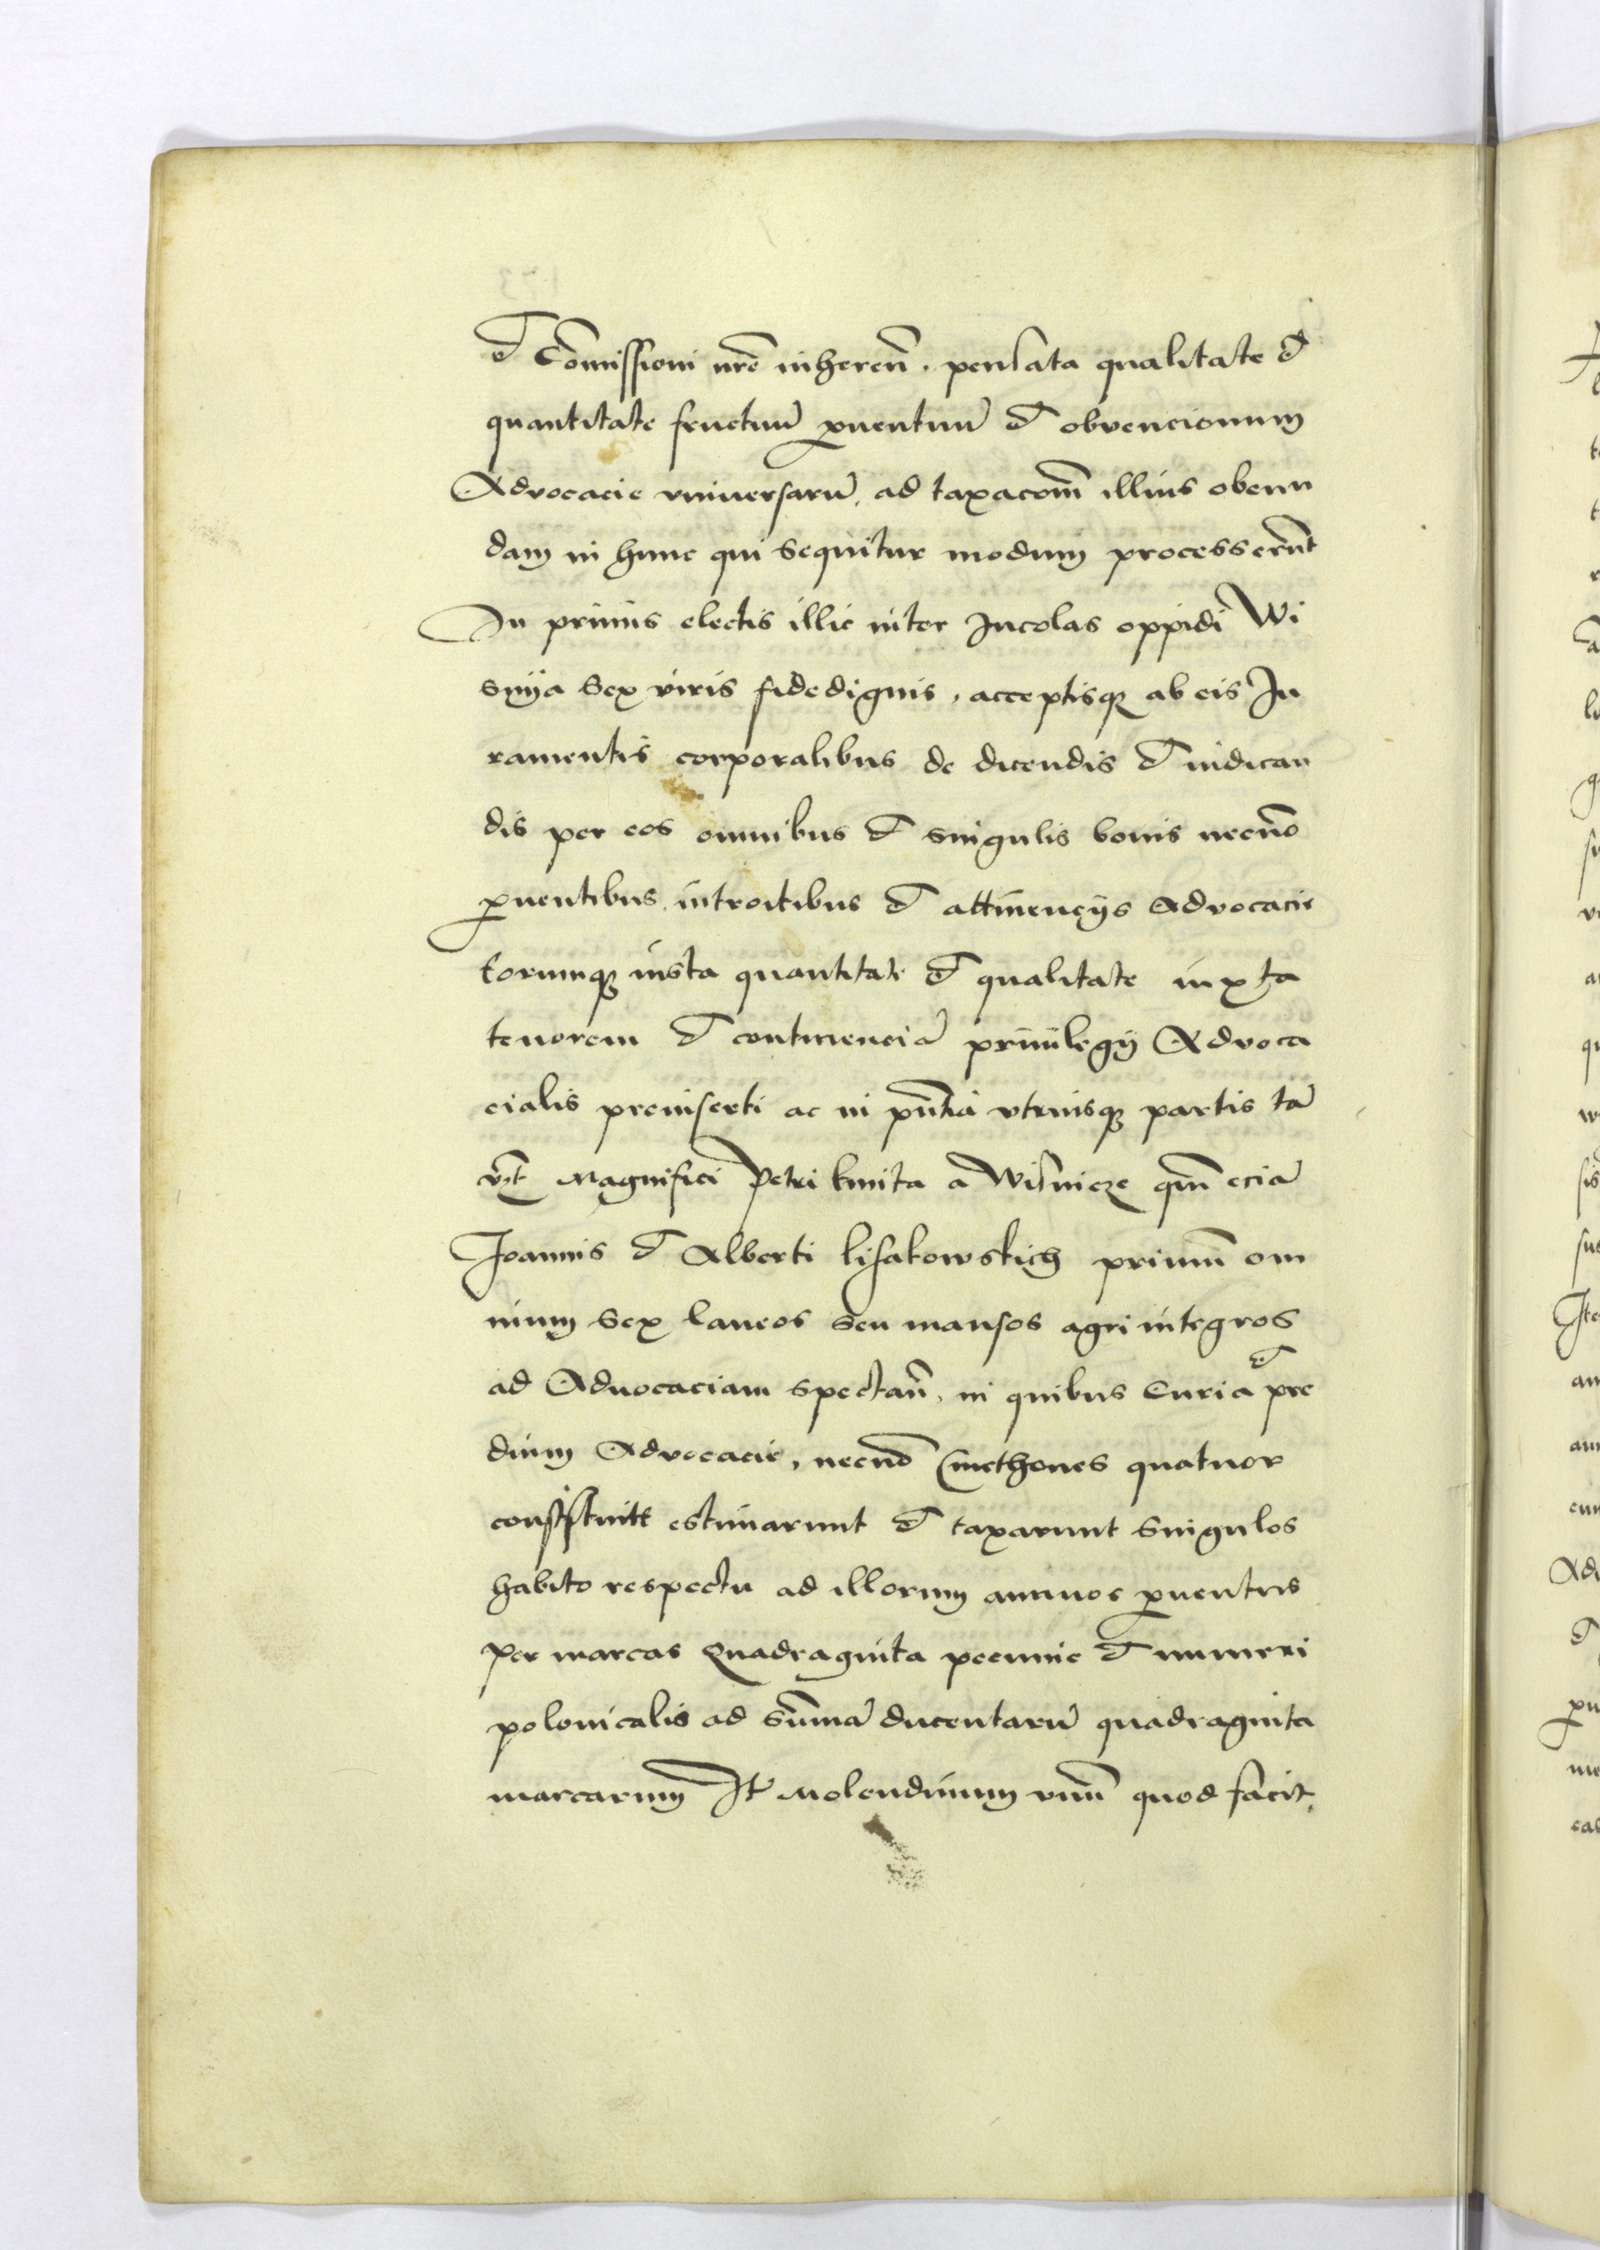 et Co͞missioni nr̃e inheren̄. pensata qualitate et
quantitate fructuū ꝓuentuū et obvencionum
Advocacie vniversarū, ad taxacom̄ illius obeun
dam in hunc qui sequitur modum processerūt
In primis electis illic inter Incolas oppidi Wi
snija sex viris fidedignis, acceptisqꝫ ab eis Iu
ramentis corporalibus de dicendis et iudican
dis per eos omnibus et singulis bonis necnō
ꝓuentibus, introitibus et attinencijs Advocacie
eorumqꝫ iusta quantitate et qualitate iuxta
tenorem et continenciā priuilegij Advoca
cialis preinserti ac in pn̄tia vtriusqꝫ partis tā
vꝫt Magnifici Petri kmita a Wisnicze qm̄ eciā
Joannis et Alberti lisakowskich primū om
nium sex laneos seu mansos agri integros
ad Aduocaciam spectan̄. in quibus Curia et pre
dium Advocacie, necnō Cmethones quatuor
consistuntt estimarunt et taxarunt singulos
habito respectu ad illorum annuos ꝓuentus
per marcas Quadraginta pecunie et numeri
polonicalis ad sūmā ducentarū quadraginta
marcarum It̄ Molendinum vnū quod facit